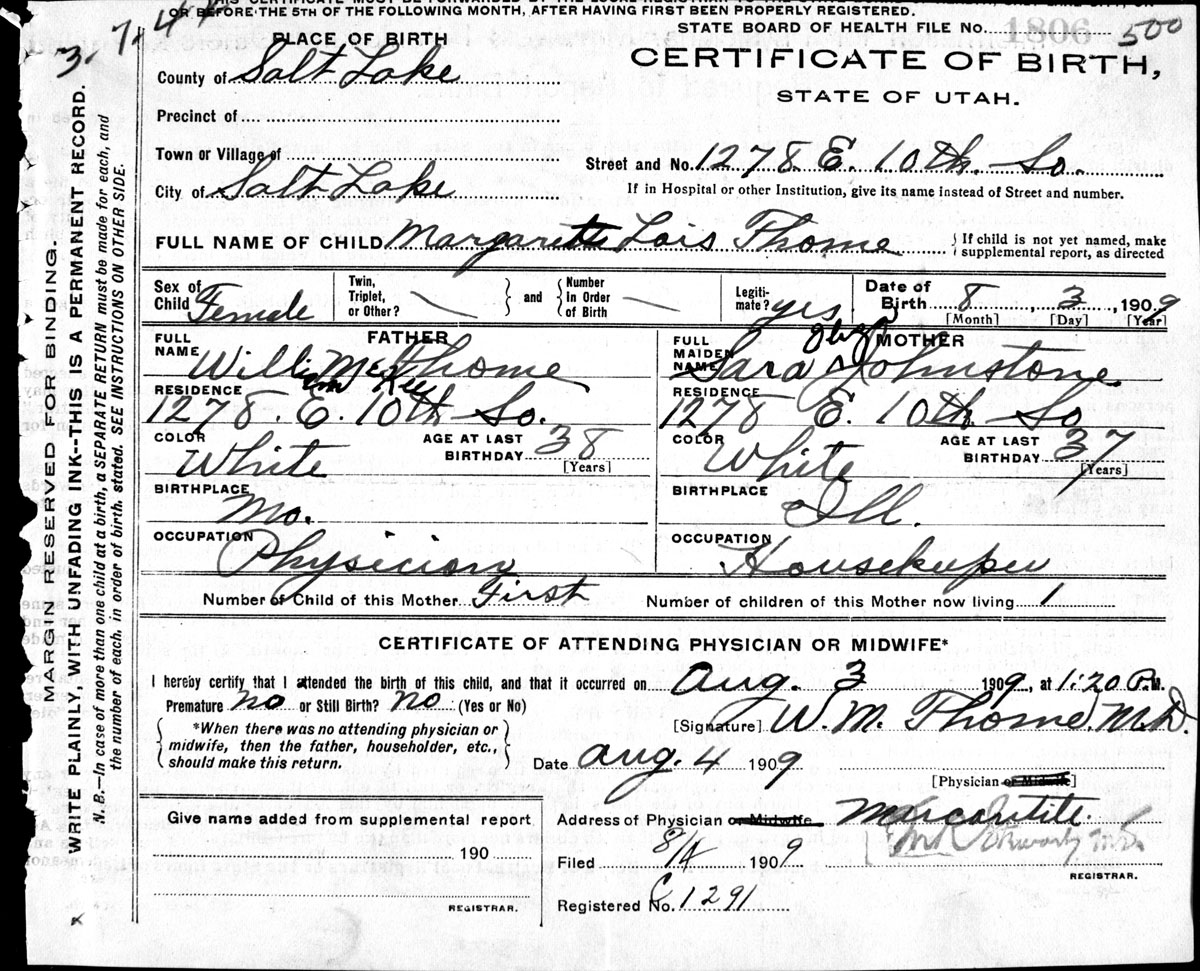 OR BEFORE THE 5TH OF THE FOLLOWING MONTH, AFTER HAVING FIRST BEEN PROPERLY REGISTERED.
3. 7. 4
STATE BOARD OF HEALTH FILE No. 1806 500
PLACE OF BIRTH
CERTIFICATE OF BIRTH,
STATE OF UTAH.
County of Salt Lake
Precinct of
Town or Village of
Street and No. 1278 E. 10th. So.
City of Salt Lake
If in Hospital or other Institution, give its name instead of Street and number.
FULL NAME OF CHILD Margarette Lois Thome
{If child is not yet named, make
supplemental report, as directed
Sex of Child Female
Twin, Triplet, or Other?
and
Number In Order of Birth
Legiti-mate? yes
Date of Birth 8 3, 1909
[Month] [Day] [Year]
FATHER
FULL NAME William McKee Thome
RESIDENCE
1278 E. 10th So.
COLOR White
AGE AT LAST BIRTHDAY 38
[Years]
BIRTHPLACE
Mo.
OCCUPATION
Physician
MOTHER
FULL MAIDEN NAME Sara Johnstone
RESIDENCE
1278 E. 10th So
COLOR White
AGE AT LAST BIRTHDAY 37
[Years]
BIRTHPLACE
Ill.
OCCUPATION
Housekeeper
Number of Child of this Mother First
Number of children of this Mother now living 1
CERTIFICATE OF ATTENDING PHYSICIAN OR MIDWIFE*
I hereby certify that I attended the birth of this child, and that it occurred on Aug. 3 1909, at 1:20 P.M.
Premature no or Still Birth? no (Yes or No)
[Signature] W. M. Thome, M.D.
{*When there was no attending physician or
midwife, then the father, householder, etc.,
should make this return.}
Date Aug. 4 1909
[Physician or Midwife]
Address of Physician or Midwife Mercantile
Give name added from supplemental report
190
REGISTRAR.
Filed 8/4 1909
REGISTRAR.
Registered No. C 1291
MARGIN RESERVED FOR BINDING.
WRITE PLAINLY, WITH UNFADING INK--THIS IS A PERMANENT RECORD.
N. B.—In case of more than one child at a birth, a SEPARATE RETURN must be made for each, and
the number of each, in order of birth, stated. SEE INSTRUCTIONS ON OTHER SIDE.